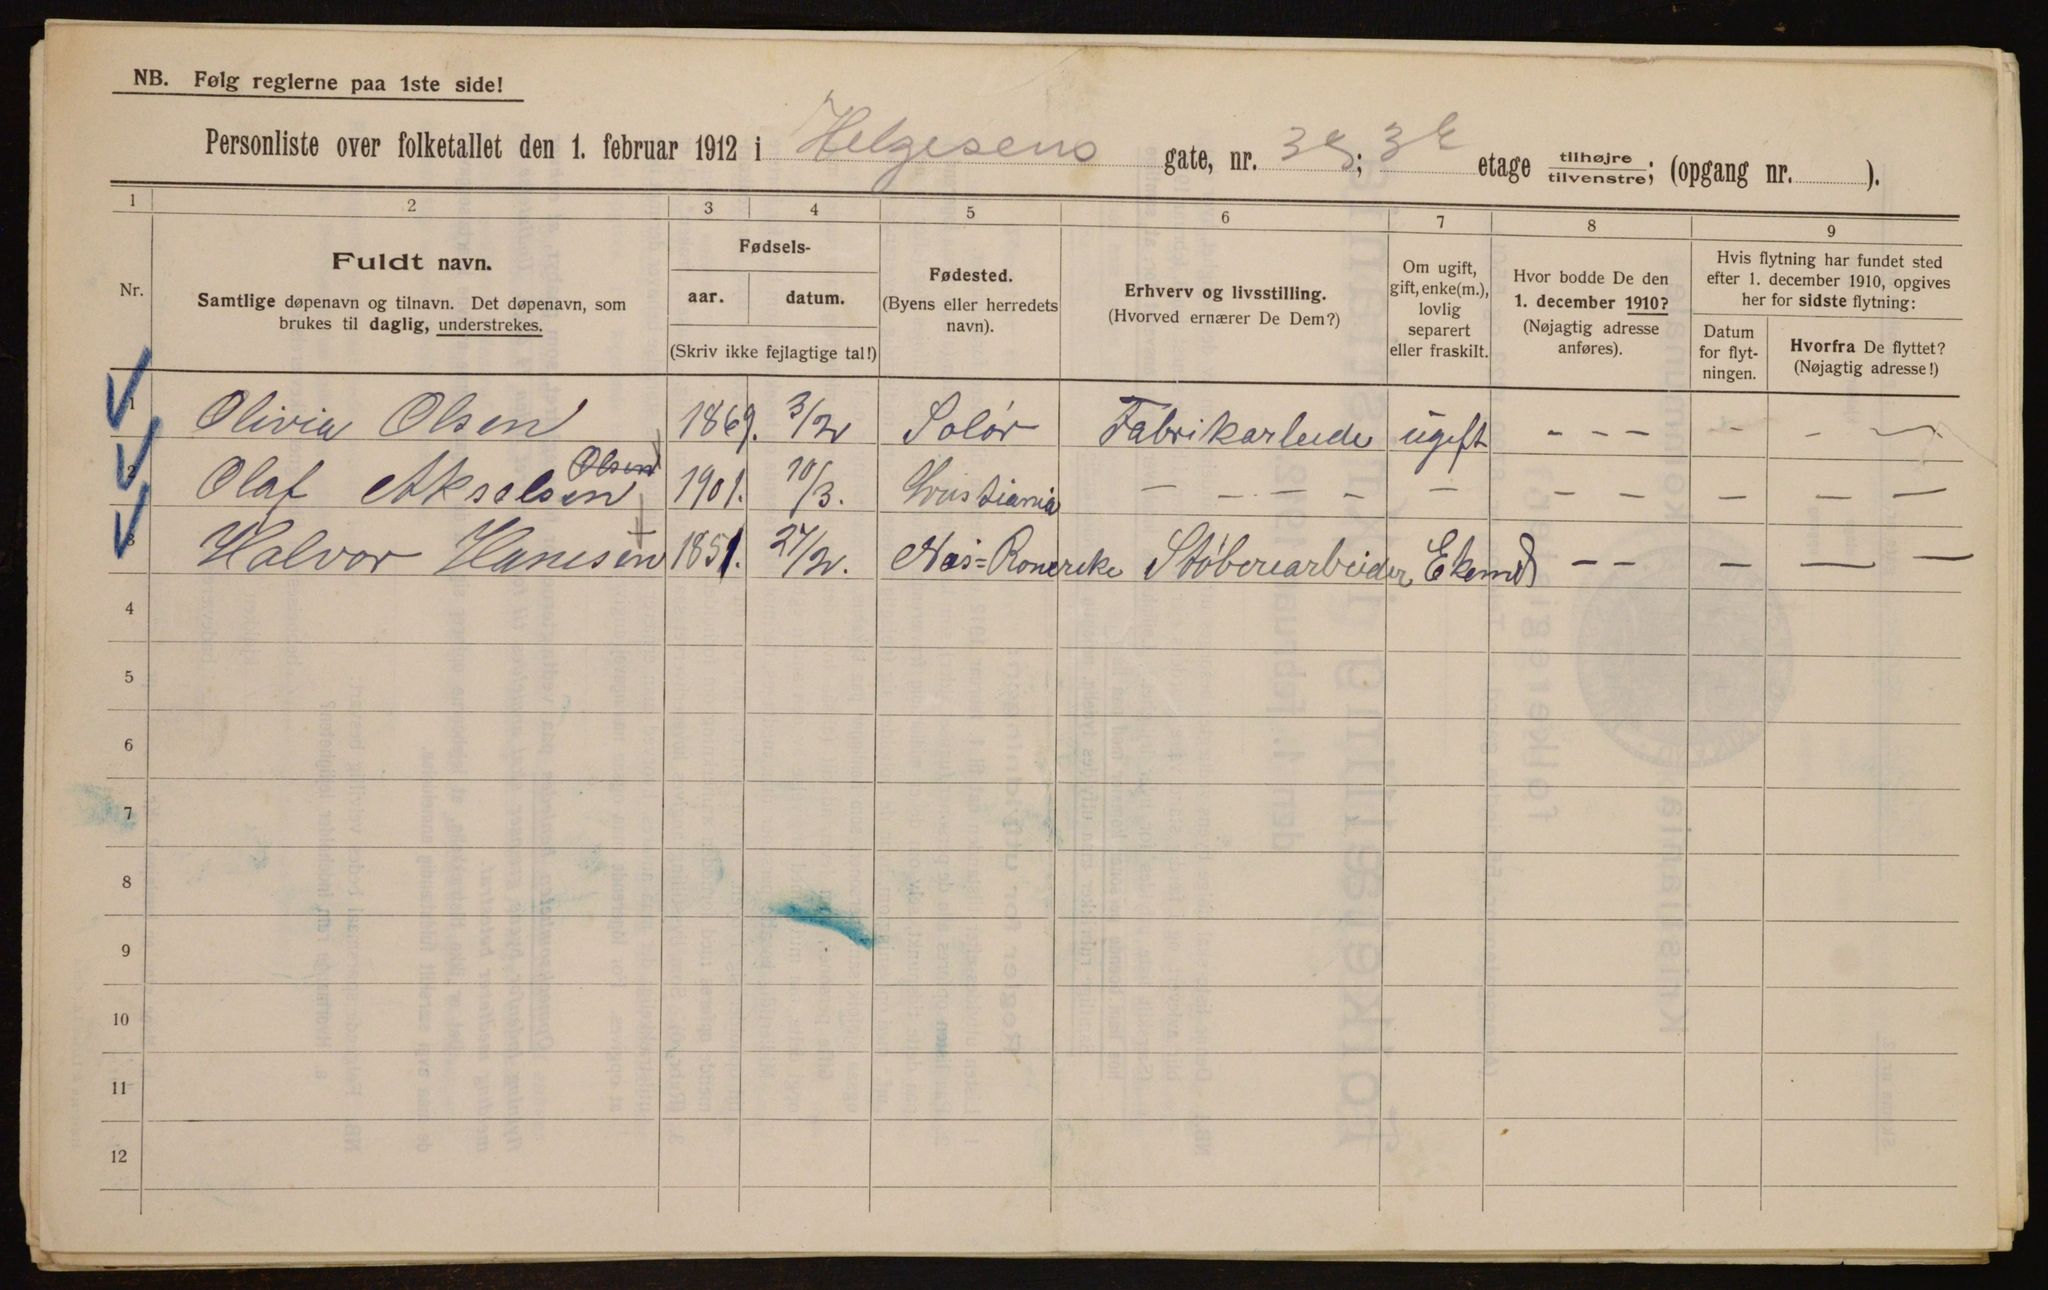 NB. Følg reglerne paa 1ste side!
Personliste over folketallet den 1. februar 1912 i Helgesens gate, nr. 38; 3E etage tilhøjre/tilvenstre; (opgang nr. ).
1 2 3 4 5 6 7 8 9
Nr.
Fuldt navn.
Samtlige døpenavn og tilnavn. Det døpenavn, som
brukes til daglig, understrekes.
Fødsels-
aar. datum.
(Skriv ikke fejlagtige tal!)
Fødested.
(Byens eller herredets
navn).
Erhverv og livsstilling.
(Hvorved ernærer De Dem?)
Om ugift,
gift, enke(m.),
lovlig
separert
eller fraskilt.
Hvor bodde De den
1. december 1910?
(Nøjagtig adresse
anføres).
Hvis flytning har fundet sted
efter 1. december 1910, opgives
her for sidste flytning:
Datum
for flyt-
ningen.
Hvorfra De flyttet?
(Nøjagtig adresse!)
1 Olivia Olsen 1869. 3/2 Solør Fabrikarbeide ugift - - - - - -
Olsen
2 Olaf Akselsen 1901. 10/3. Kristiania - - - - - - - - - -
3 Halvor Hansen 1851. 27/2. Nes=Romerike Støberiarbeider Ekemd - - - - -
4
5
6
7
8
9
10
11
12